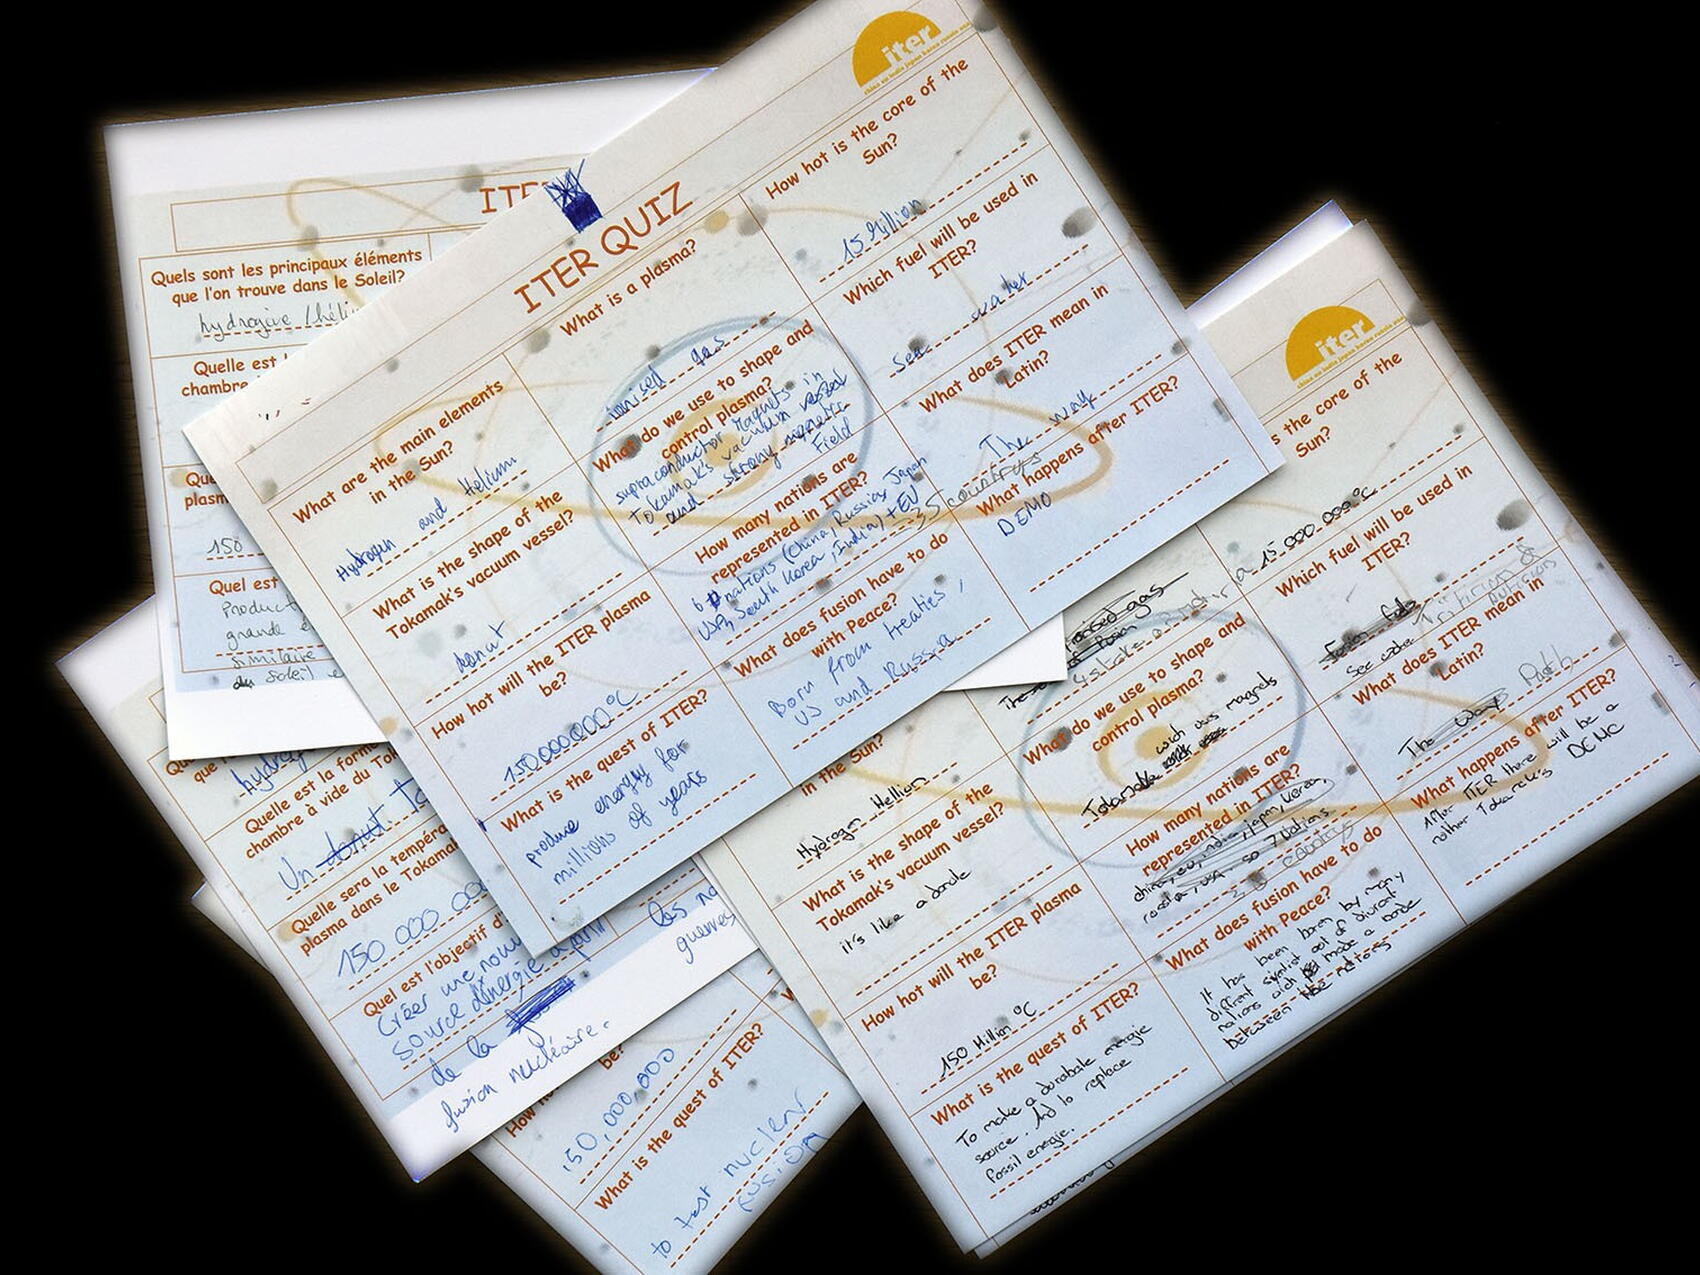 ITER QUIZ
iter
china eu india japan korea russia usa
What are the main elements
in the Sun?
Hydrogen and Helium
What is a plasma?
ionised gas
How hot is the core of the
Sun?
15 Million
What is the shape of the
Tokamak's vacuum vessel?
donut
What do we use to shape and
control plasma?
supraconductor magnets in
Tokamak's vacuum vessel
and strong magnetic
Field
Which fuel will be used in
ITER?
Sea water
How hot will the ITER plasma
be?
150000000°C
How many nations are
represented in ITER?
nations (China, Russia, Japan
USA, South Korea, India) + EU
35 countrys
What does ITER mean in
Latin?
The way
What is the quest of ITER?
produce energy for
millions of years
What does fusion have to do
with Peace?
Born from treaties,
US and Russia
What happens after ITER?
DEMO
Quels sont les principaux éléments
que l'on trouve dans le Soleil?
hydrogène / héli
Quelle est l
chambre
Qua
plasm
150
Quel est
Product
grande é
similaire
du soleil e
hydrog
Quelle est la forme
chambre à vide du Tok
Un donut
Quelle sera la tempéra
plasma dans le Tokama
150 000 00
Quel est l'objectif d'
Créer une nou
source d'énergie à partir
de la
fusion nucléaire.
guerres
How
be?
150,000,000
What is the quest of ITER?
to test nuclear
fusion
iter
china eu india japan korea russia usa
s the core of the
Sun?
15 000 000°C
Which fuel will be used in
ITER?
See water
in the Sun?
Hydrogen Hellion
What do we use to shape and
control plasma?
with magnets
What does ITER mean in
Latin?
The way Path
What is the shape of the
Tokamak's vacuum vessel?
it's like a donde
How many nations are
represented in ITER?
china, eu, india, Japan, Korea,
russia, usa so 7 Nations.
What happens after ITER?
After ITER there will be a
nother Tokamak's DEMO
How hot will the ITER plasma
be?
150 Million °C
What does fusion have to do
with Peace?
It has been boren by many
What is the quest of ITER?
To make a durabale energie
source. And to replace
fossil energie.